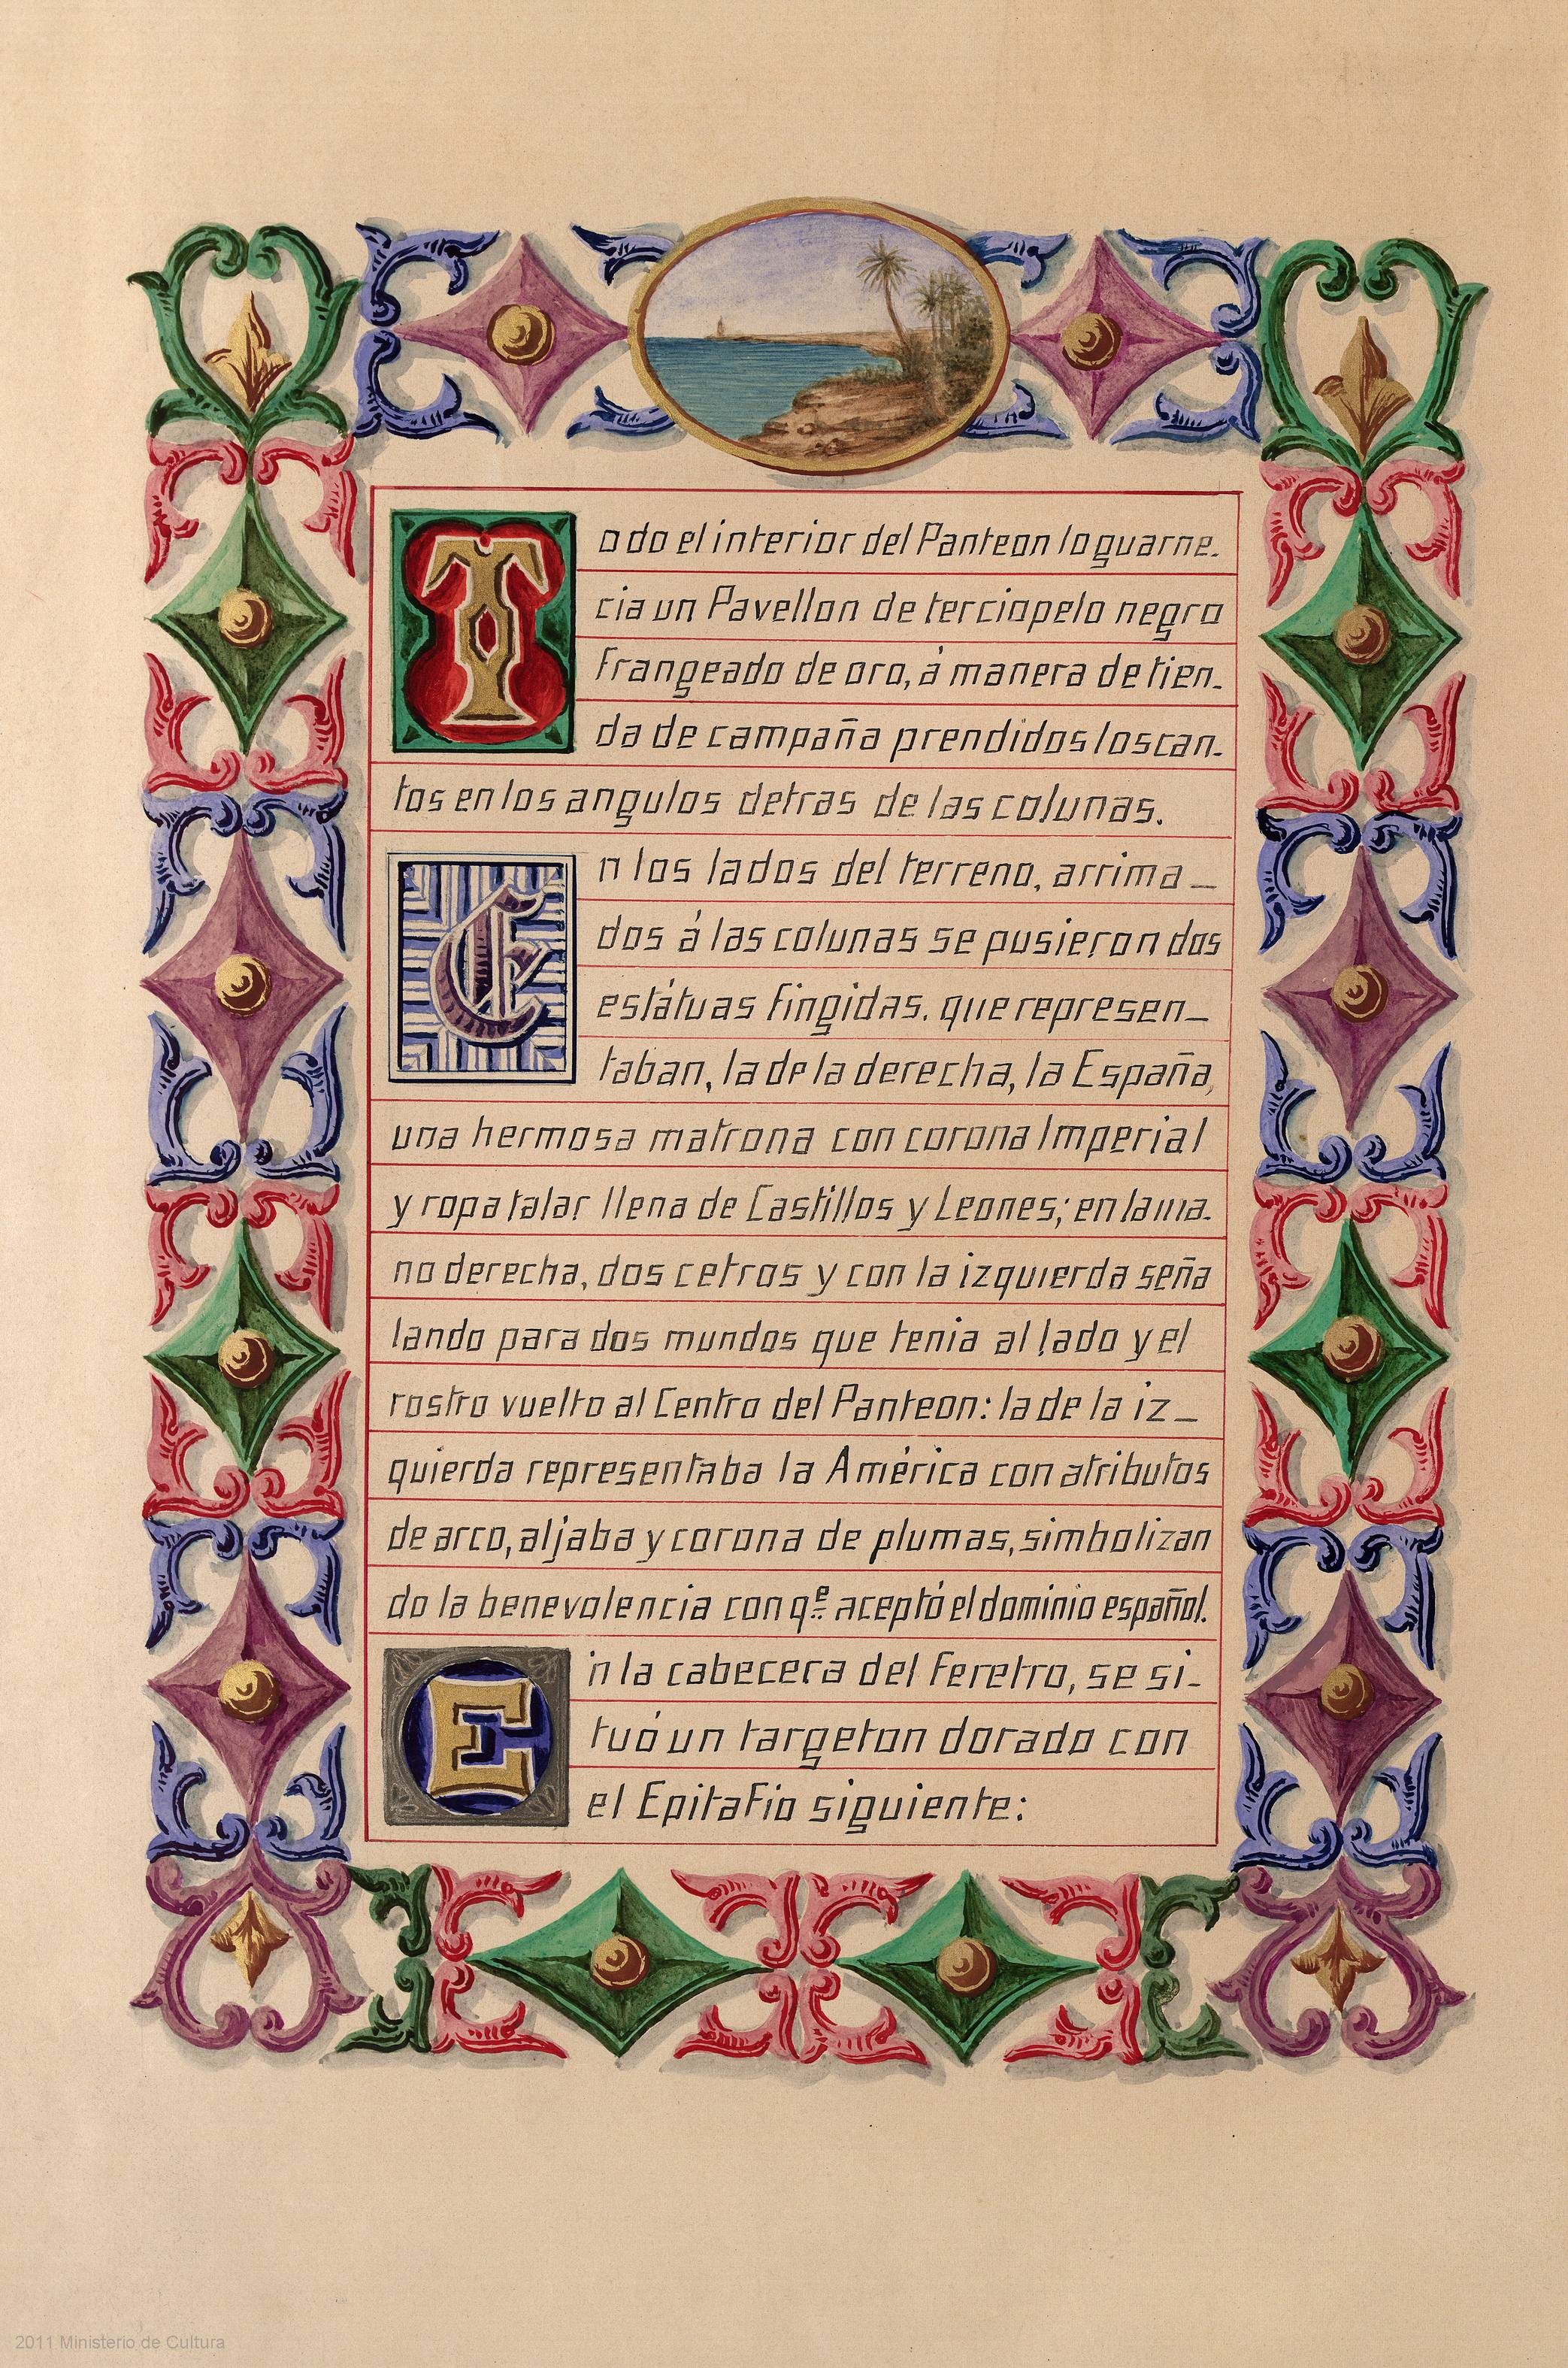 Todo el interior del Panteon lo guarne-
cia un Pavellon de terciopelo negro
frangeado de oro, á manera de tien-
da de campaña prendidos los can-
tos en los angulos detras de las colunas.
En los lados del terreno, arrima-
dos á las colunas se pusieron dos
estátuas fingidas. que represen-
taban, la de la derecha, la España,
una hermosa matrona con corona Imperial
y ropa talar llena de Castillos y Leones; en la ma-
no derecha, dos cetros y con la izquierda seña
lando para dos mundos que tenia al lado y el
rostro vuelto al Centro del Panteon: la de la iz-
quierda representaba la América con atributos
de arco, aljaba y corona de plumas, simbolizan
do la benevolencia con qᵉ aceptó el dominio español.
En la cabecera del feretro, se si-
tuó un targeton dorado con
el Epitafio siguiente:
2011 Ministerio de Cultura